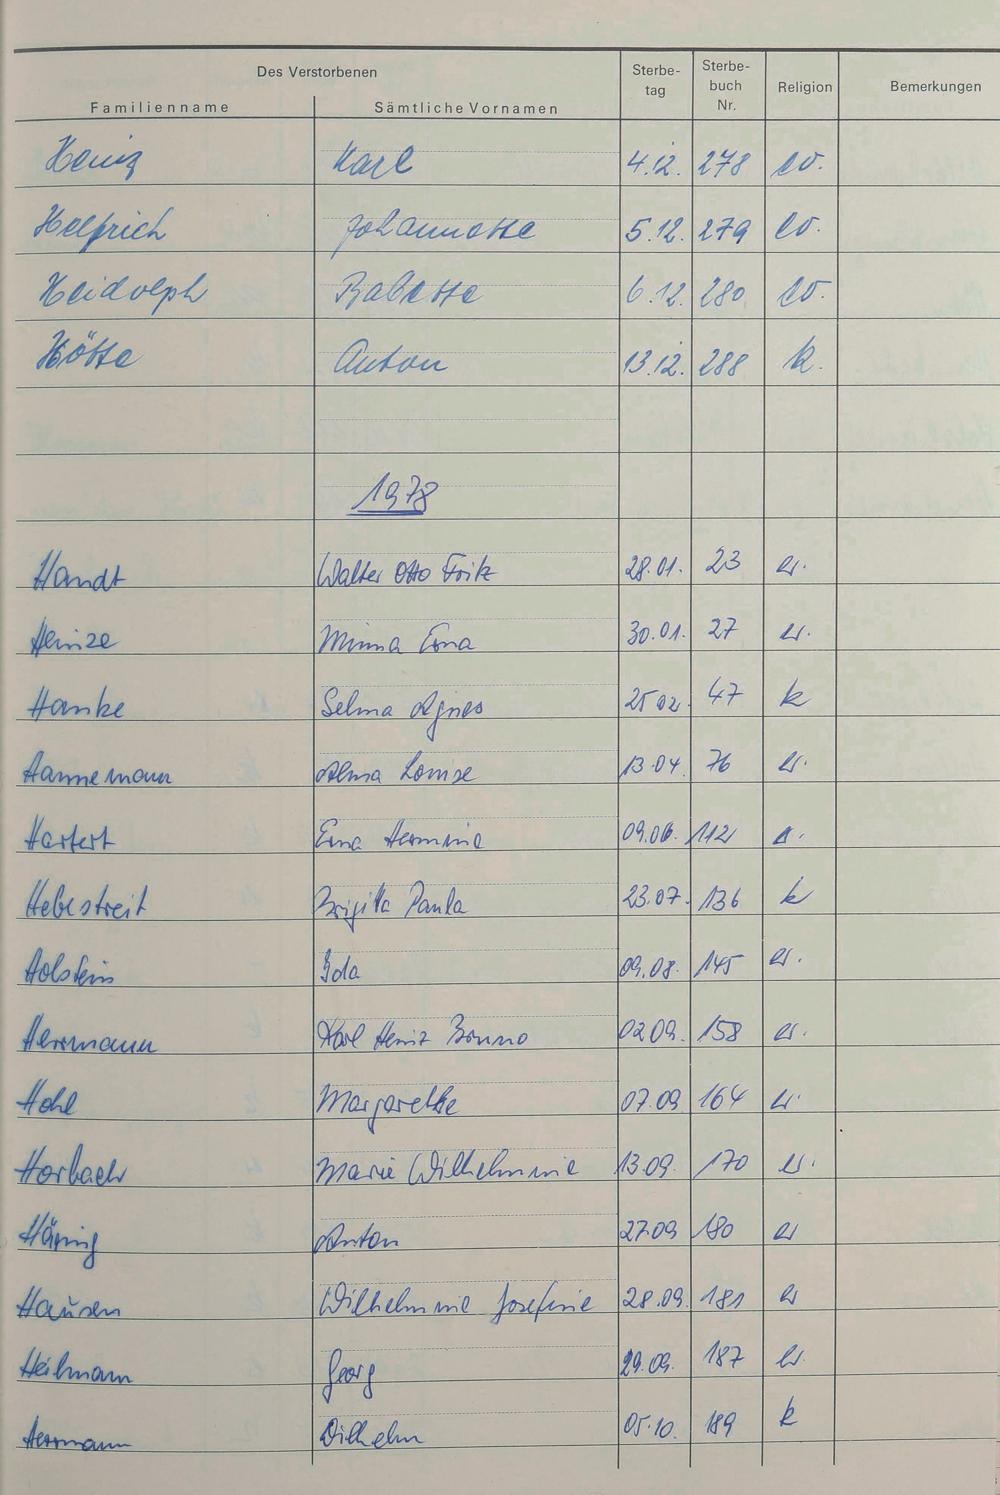 Des Verstorbenen
Familienname Sämtliche Vornamen Sterbe-tag Sterbe-buch Nr. Religion Bemerkungen
Heinz Karl 4.12. 278 ev.
Helfrich Johannette 5.12. 279 ev.
Heidolph Babette 6.12. 280 ev.
Hötte Anton 13.12. 288 k.
1978
Handt Walter Otto Fritz 28.01. 23 ev.
Heinze Minna Erna 30.01. 27 ev.
Hanke Selma Agnes 25 02. 47 k
Hannemann Alma Louise 13.04. 76 ev.
Hartert Erna Hermine 09.06. 112 ev.
Hebestreit Brigitta Paula 23.07. 136 k
Holstein Ida 09.08. 145 ev.
Herrmann Karl Heinz Bruno 02 09. 158 ev.
Hohl Margarethe 07.09 164 ev.
Horbach Marie Wilhelmine 13.09. 170 ev.
Häring Anton 27.09 180 ev
Hausen Wilhelmine Josefine 28.09. 181 ev
Heilmann Georg 29.09. 187 ev.
Hermann Wilhelm 05.10. 189 k